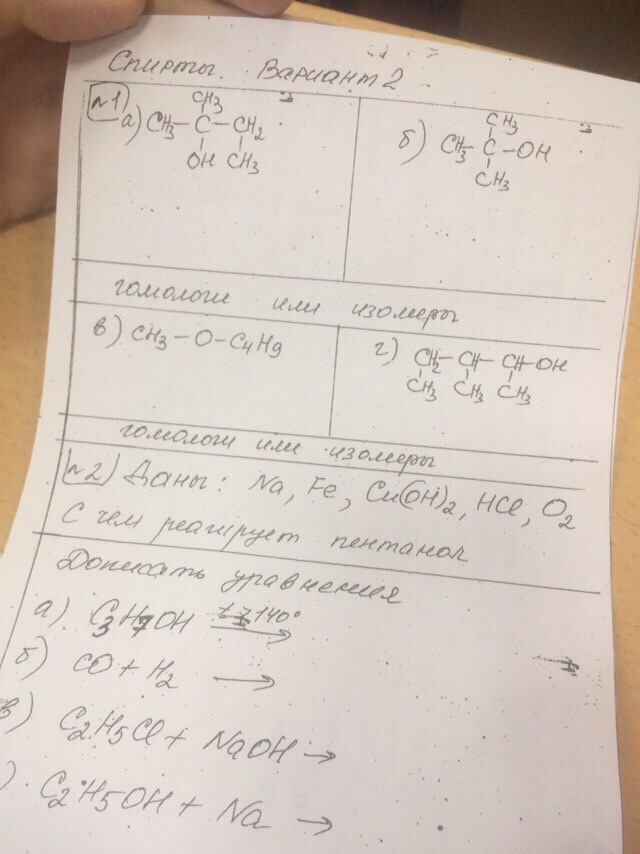 Спирты. Вариант 2
№1
CH3
а) CH3 – C – CH2
OH CH3
CH3
б) CH3 – C – OH
CH3
гомологи или изомеры
в) CH3 – O – C4H9
г) CH2 – CH – CH – OH
CH3 CH3 CH3
гомологи или изомеры
№2) Даны: Na, Fe, Cu(OH)2, HCl, O2
С чем реагирует пентанол
Дописать уравнения
а) C3H7OH t>140° →
б) CO + H2 →
в) C2H5Cl + NaOH →
) C2H5OH + Na →